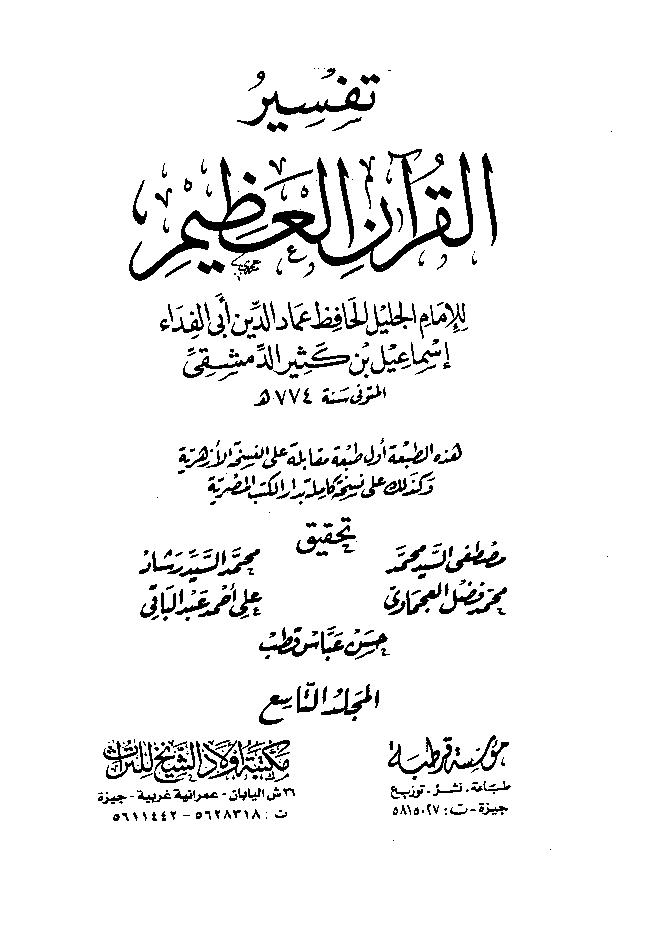 تفسير
القرآن العظيم
للإمام الجليل الحافظ عماد الدين أبي الفداء
إسماعيل بن كثير الدمشقي
المتوفى سنة ٧٧٤ هـ
هذه الطبعة أول طبعة مقابلة على النسخة الأزهرية
وكذلك على نسخة كاملة بدار الكتب المصرية
تحقيق
مصطفى السيد محمد
محمد السيد رشاد
محمد فضل العجماوي
علي أحمد عبد الباقي
حسن عباس قطب
المجلد التاسع
مؤسسة قرطبة
طباعة . نشر . توزيع
جيزة - ت: ٥٨١٥٠٢٧
مكتبة أولاد الشيخ للتراث
٣٦ ش اليابان - عمرانية غربية - جيزة
ت : ٥٦٢٨٣١٨ - ٥٦١١٤٤٢